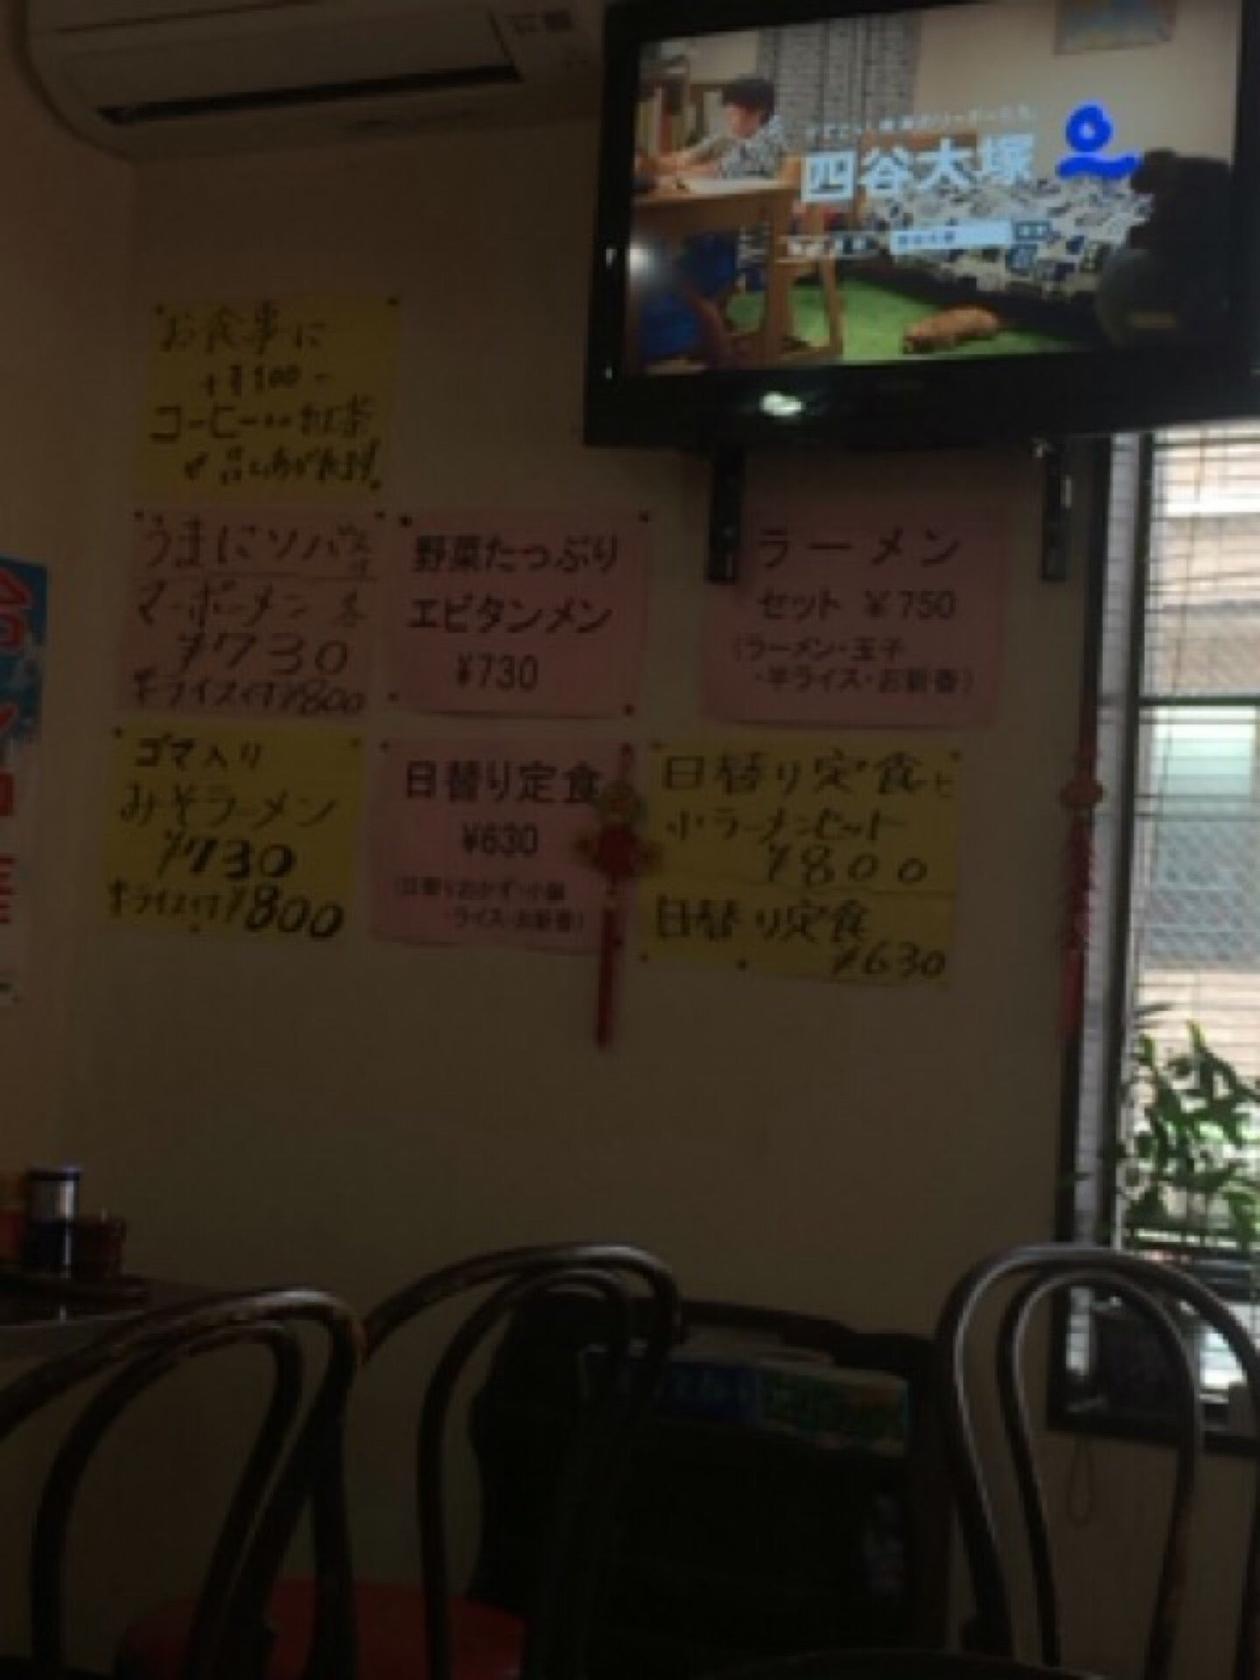 四谷大塚
お食事に
+¥100-
コーヒー・紅茶
うまにソバ
マーボーメン 各
¥730
半ライス付¥800
野菜たっぷり
エビタンメン
¥730
ラーメン
セット ¥750
(ラーメン・玉子
・半ライス・お新香)
ゴマ入り
みそラーメン
¥730
半ライス付¥800
日替り定食
¥630
(日替りおかず・小鉢
・ライス・お新香)
日替り定食と
小ラーメンセット
¥800
日替り定食
¥630